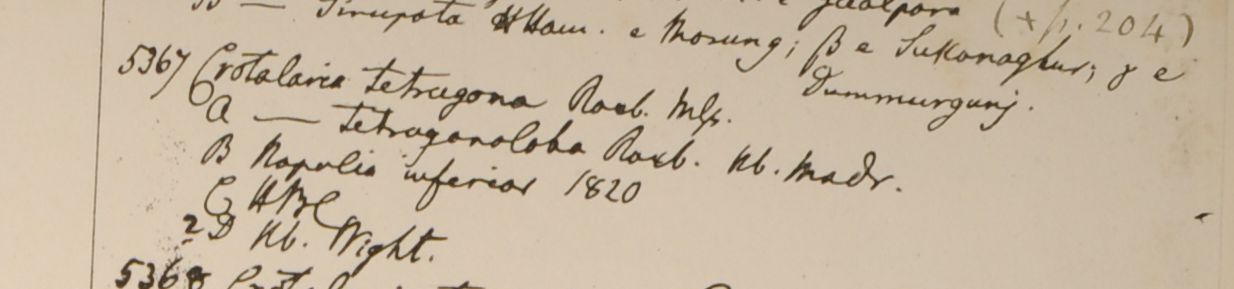 B — Sirupota HHam. e Morung; β e Sukanaghur; γ e
Goalpara (+ p. 204)
Dummurgunj.
5367 Crotalaria tetragona Roxb. Mss.
A — tetragonoloba Roxb. Hb. Madr.
B Napalia inferior 1820
C HBC
? D Hb. Wight.
5368